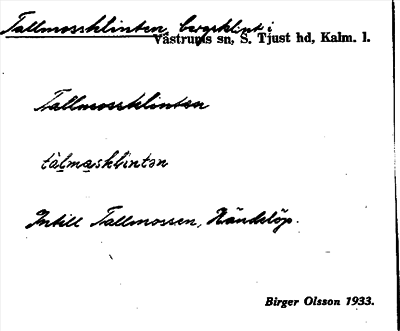 Tallmossklinten, bergsklint i
Västrums sn, S. Tjust hd, Kalm. l.
Tallmossklinten
tàlmasklìntən
Intill Tallmossen, Händelöp.
Birger Olsson 1933.